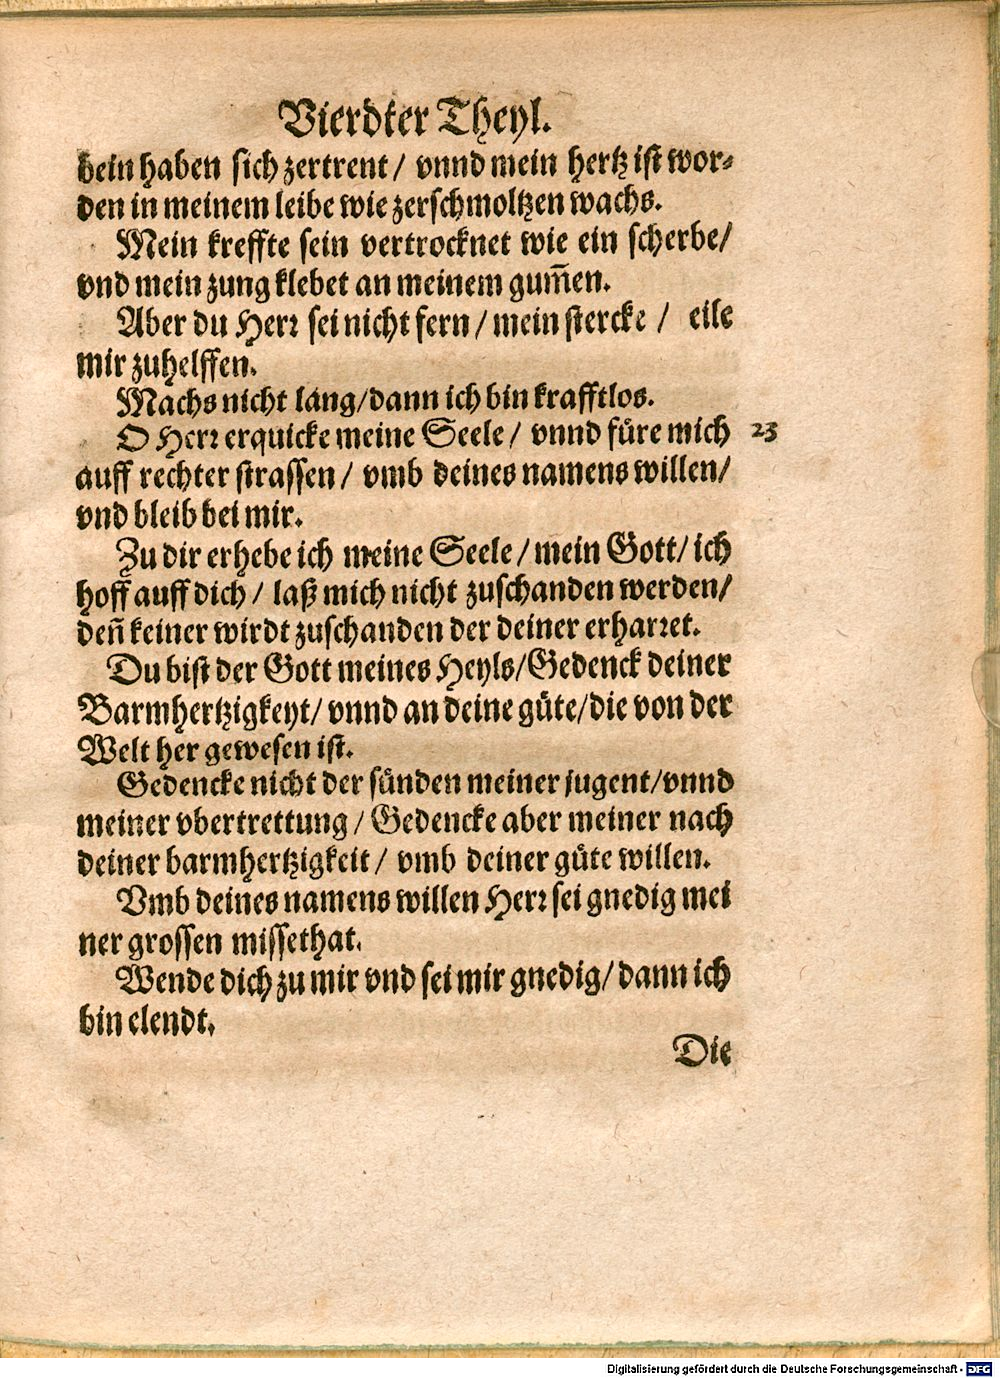 Vierdter Theyl.
bein haben sich zertrent / vnnd mein hertz ist wor⸗
den in meinem leibe wie zerschmoltzen wachs.
Mein kreffte sein vertrocknet wie ein scherbe/
vnd mein zung klebet an meinem gum̄en.
Aber du Herꝛ sei nicht fern / mein stercke / eile
mir zuhelffen.
Machs nicht lang/dann ich bin krafftlos.
O Herꝛ erquicke meine Seele / vnnd füre mich 23
auff rechter strassen / vmb deines namens willen/
vnd bleib bei mir.
Zu dir erhebe ich meine Seele / mein Gott/ ich
hoff auff dich / laß mich nicht zuschanden werden/
den̄ keiner wirdt zuschanden der deiner erharꝛet.
Du bist der Gott meines Heyls/Gedenck deiner
Barmhertzigkeyt/ vnnd an deine güte/die von der
Welt her gewesen ist.
Gedencke nicht der sünden meiner jugent/vnnd
meiner vbertrettung / Gedencke aber meiner nach
deiner barmhertzigkeit / vmb deiner güte willen.
Vmb deines namens willen Herꝛ sei gnedig mei
ner grossen missethat.
Wende dich zu mir vnd sei mir gnedig/ dann ich
bin elendt.
Die
Digitalisierung gefördert durch die Deutsche Forschungsgemeinschaft - DFG